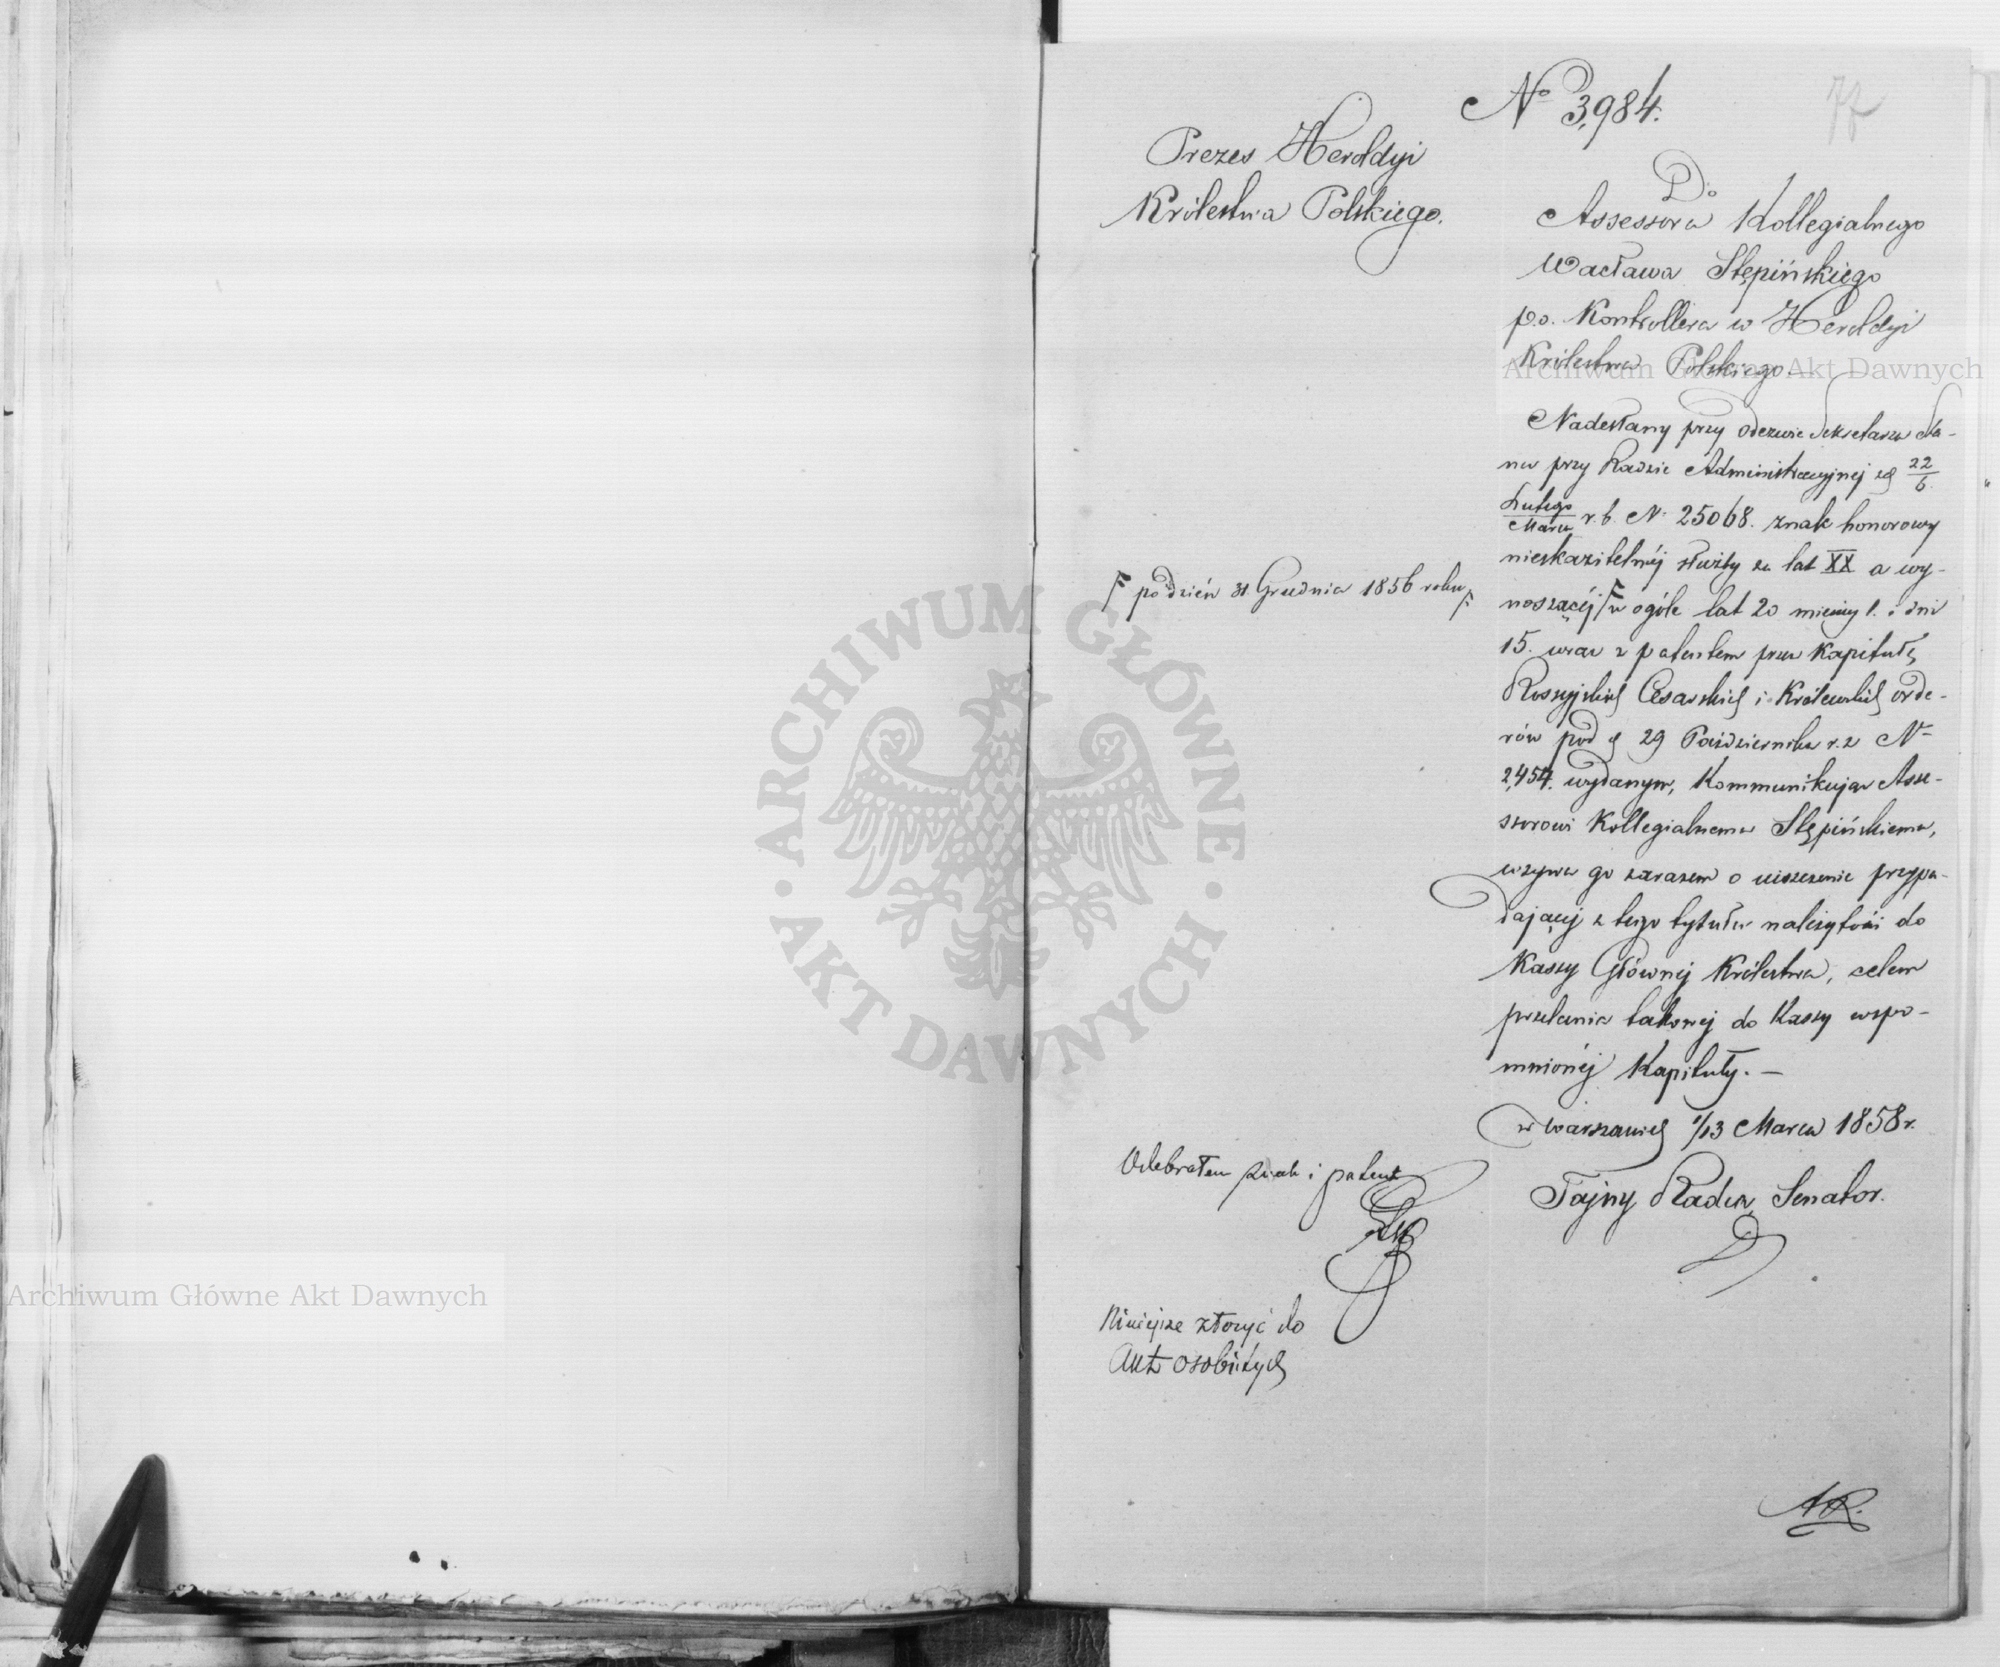 No 3,984.
77
Prezes Heroldyi
Królestwa Polskiego.
Do
Assessora Kollegialnego
Wacława Stępińskiego
p.o. Kontrollera w Heroldyi
Królestwa Polskiego.—
Nadesłany przy odezwie Sekretarza Sta-
nu przy Radzie Administracyjnej z d 22/6
Lutego/Marca r.b. N 25068. znak honorowy
nieskazitelnéj służby za lat XX a wy-
noszącéj F w ogóle lat 20 miesięcy 1. i dni
F po dzień 31 Grudnia 1856 roku F.
15. wraz z patentem przez Kapitułę
Rossyjskich Cesarskich i Królewskich orde-
rów pod d 29 Października r.z N
2,454. wydanym, Kommunikując Asse-
ssorowi Kollegialnemu Stępińskiemu,
wzywa go zarazem o uiszczenie przypa-
dającej z tego tytułu należytości do
Kassy Głównej Królestwa, celem
przesłania takowej do Kassy wspo-
mnionéj Kapituły.—
w Warszawie d 1/13 Marca 1858 r.
Tajny Radca, Senator.
Odebrałem znak i patent
Niniejsze złożyć do
Akt osobistych
AR.
ARCHIWUM GŁÓWNE
· AKT DAWNYCH ·
Archiwum Główne Akt Dawnych
Archiwum Główne Akt Dawnych